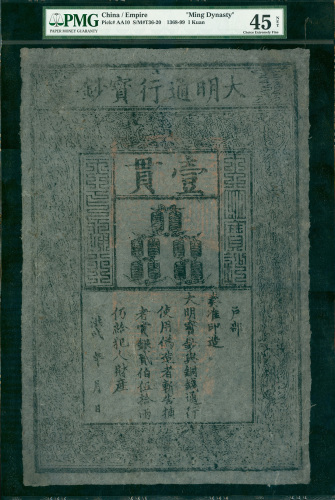 PMG
PAPER MONEY GUARANTY
China / Empire "Ming Dynasty"
Pick# AA10 S/M#T36-20 1368-99 1 Kuan
45 NET
Choice Extremely Fine
大明通行寶鈔
壹貫
戶部
奏准印造
大明寶鈔與銅錢通行
使用偽造者斬告捕
者賞銀貳伯伍拾兩
仍給犯人財產
洪武 年 月 日